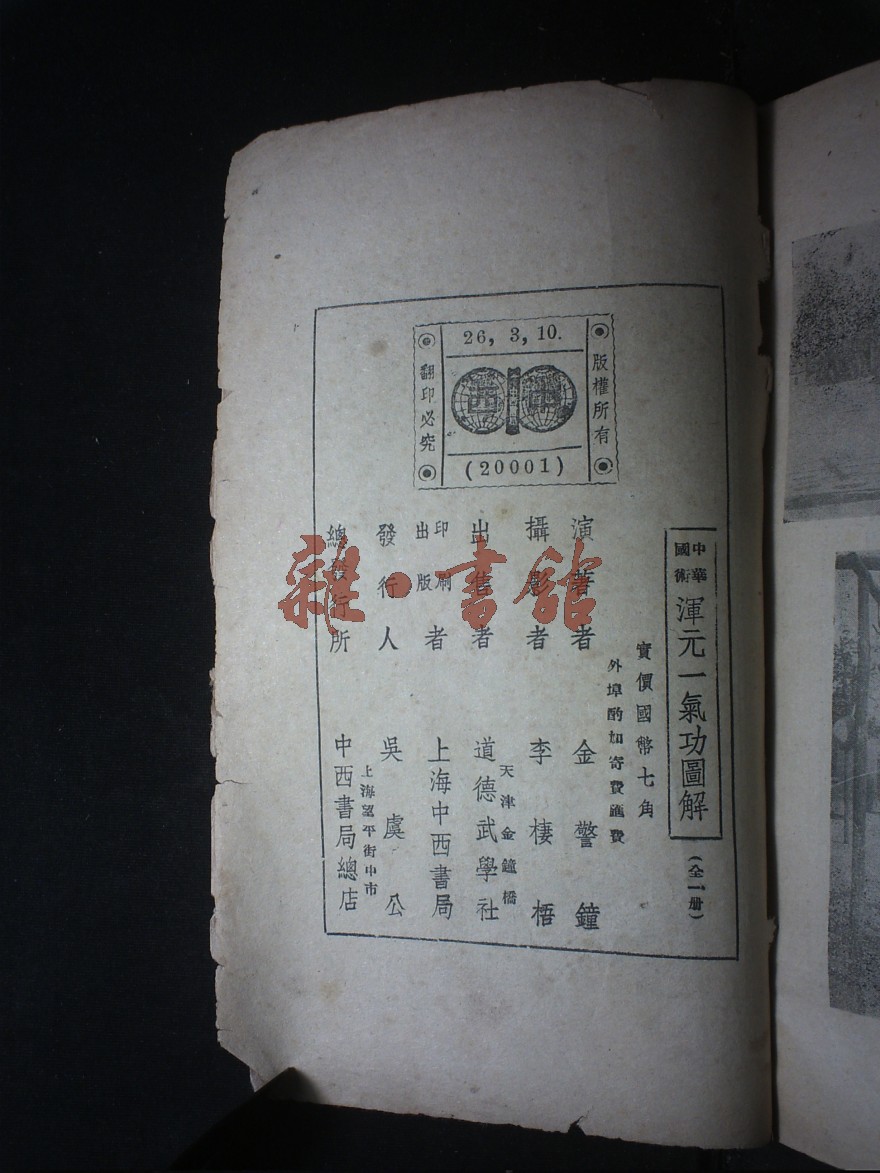 26, 3, 10.
版權所有
翻印必究
西 中
(20001)
中華國術
渾元一氣功圖解
(全一册)
實價國幣七角
外埠酌加寄費匯費
演著者 金警鐘
攝影者 李棲梧
出售者 天津金鐘橋 道德武學社
印刷出版者 上海中西書局
發行人 吳虞公
總發行所 上海望平街中市 中西書局總店
雜·書館